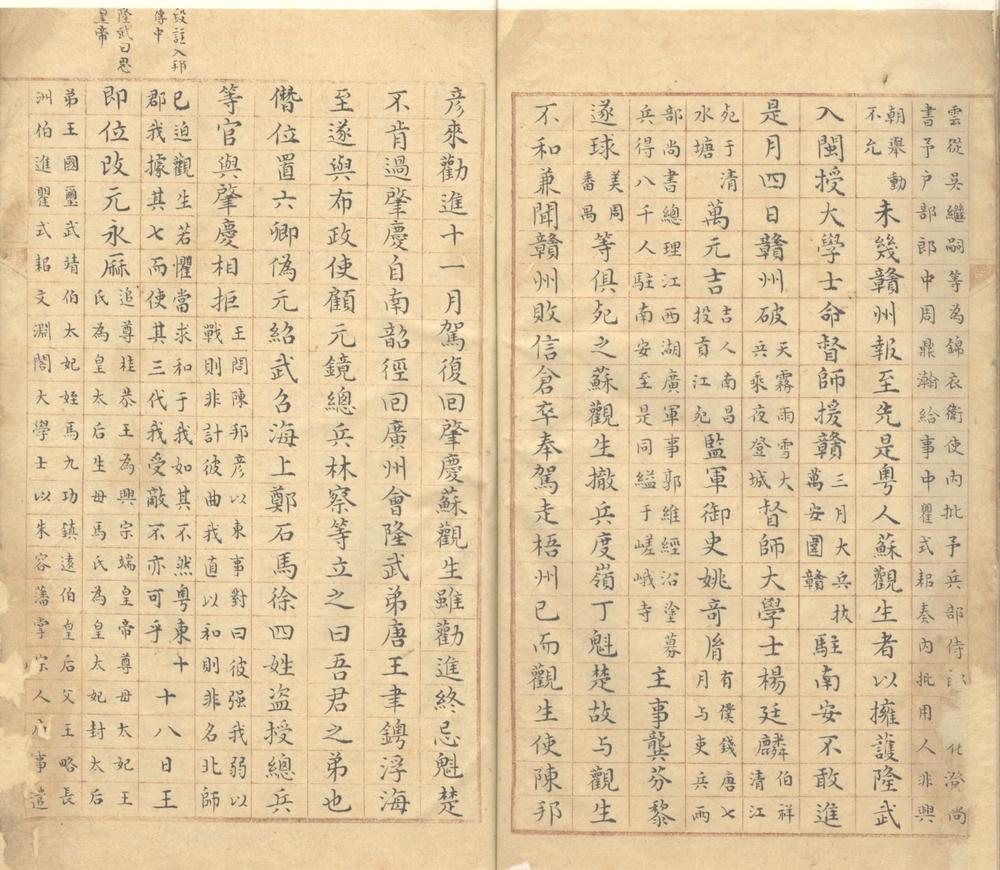 雲從吳繼嗣等為錦衣衛使內批予兵部侍 化澄尚
書予戶部郎中周鼎瀚給事中瞿式耜奏內批用人非興
朝舉動
不允
未幾贛州報至先是粵人蘇觀生者以擁護隆武
入閩授大學士命督師援贛
三月大兵抜
萬安圍贛
駐南安不敢進
是月四日贛州破
天霧雨雪大
兵乘夜登城
督師大學士楊廷麟
伯祥
清江
死于清
水塘
萬元吉
吉人南昌
投貢江死
監軍御史姚奇胤
有僕錢唐七
月与吏兵兩
部尚書總理江西湖廣軍事郭維經沿塗募
兵得八千人駐南安至是同縊于嵯峨寺
主事龔芬黎
遂球
美周
番禺
等俱死之蘇觀生撤兵度嶺丁魁楚故与觀生
不和兼聞贛州敗信倉卒奉駕走梧州已而觀生使陳邦
彥來勸進十一月駕復回肇慶蘇觀生雖勸進終忌魁楚
不肯過肇慶自南韶徑回廣州會隆武弟唐王聿鐭浮海
至遂與布政使顧元鏡總兵林察等立之曰吾君之弟也
僭位置六卿偽元紹武召海上鄭石馬徐四姓盜授總兵
等官與肇慶相拒
王問陳邦彥以東事對曰彼强我弱以
戰則非計彼曲我直以和則非名北師
已迫觀生若懼當求和于我如其不然粵東十
郡我據其七而使其三代我受敵不亦可乎
十八日王
即位改元永厤
追尊桂恭王為興宗端皇帝尊母太妃王
氏為皇太后生母馬氏為皇太妃封太后
弟王國璽武靖伯太妃姪馬九功鎮遠伯皇后父王略長
洲伯進瞿式耜文淵閣大學士以朱容藩掌宗人府事遣
段註入邦
傳中
隆武曰思
皇帝